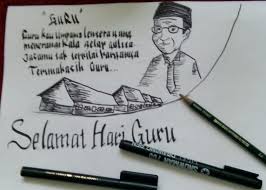 "GURU"
Guru kau umpama lentera yang
menerangi kala gelap gulita
Jasamu tak ternilai harganya
Terimakasih Guru...
Selamat Hari Guru